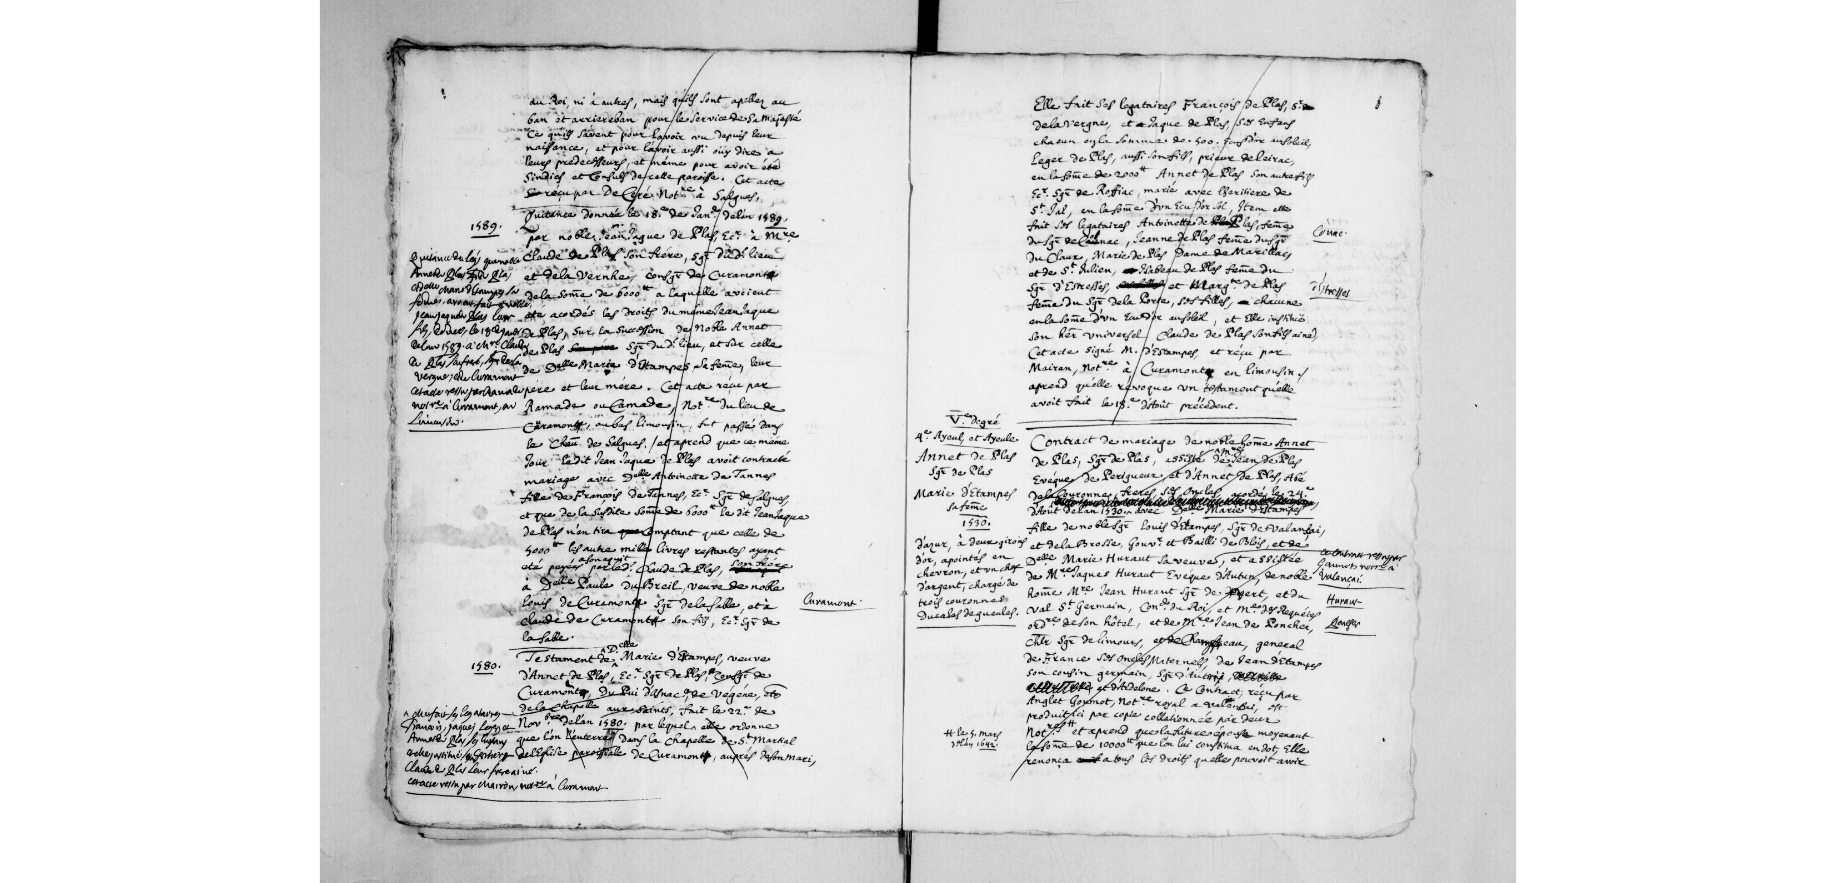 au Roi, ni à autres, mais qu'ils sont apellez au
ban et arriereban pour le service de Sa Majesté
Ce qu'ils savent pour l'avoir vu depuis leur
naissance, et pour l'avoir aussi oüy dire a
leurs predecesseurs, et même pour avoir été
Sindics et Consuls de cette paroisse. Cet acte
reçu par De Ceré Not.re à Salgues.
1589.
Quitance donnée le 18.e de Janv. de l'an 1589.
par noble Jean Jaque de Plas, Ec.r à M.re
Claude de Plas son frère, Sgr du d. lieu
et de la Vernhe, Consgr de Curamont
de la some de 6000tt a laquelle avoient
été acordés les droits du même Jean Jaque
de Plas, sur la succession de Noble Annet
de Plas Sgr du d. lieu, et sur celle
de D.elle Marie d'Etampes sa feme, leur
père et leur mère. Cet acte réçu par
Ramade ou Camade, Not.re du lieu de
Curamont, au bas limousin, fut passé dans
le Chau. de Salgues, et aprend que ce même
Jour le dit Jean Jaque de Plas avoit contracté
mariage avec D.elle Antoinette de Tannes
fille de François de Tannes, Ec.r Sgr de Salgues,
et que de la susdite some de 6000tt le dit Jean Jaque
de Plas n'en tira comptant que celle de
5000tt les autre mille livres restantes ayant
été payées par le d. Claude de Plas, son frère
à D.elle Paule du Breil, veuve de noble
Louis de Curamont Sgr de la Salle, et à
Claude de Curamont son fils, Ec.r Sgr de
la Salle.
Curamont.
1580.
Testament de D.elle Marie d'Etampes, veuve
d'Annet de Plas, Ec.r Sgr de Plas, Consgr de
Curamont, du Pui d'Arnac, de Végéne, et
de la Chapelle aux Saints, fait le 22.e de
Nov.bre de l'an 1580. par lequel elle ordonne
que l'on l'enterre dans la Chapelle de S.t Martial
de l'Eglise paroissiale de Curamont, auprès de son Mari,
Claude de Plas leur frere ainé.
cet acte reçu par Mairon notre à Curamont
Elle fait ses legataires François de Plas, S.r
de la Vergne, et Jaque de Plas, ses Enfans
chacun en la somme de 500. Ecus d'or au soleil,
Leger de Plas, aussi son fils, prieur de Leirac,
en la some de 2000tt Annet de Plas son autre fils
Ec.r Sgr de Roffiac, marié avec l'heritiere de
S.t Jal, en la some d'un Ecu d'or sol, Item elle
fait ses legataires Antoinette de Plas, feme
du Sgr de Cosnac, Jeanne de Plas feme du Sgr
du Claux, Marie de Plas Dame de Marillac
et de S.t Julien, Isabeau de Plas feme du
Sgr d'Estresses, et Marg.te de Plas
feme du Sgr de la Porte, ses filles, chacune
en la some d'un Ecu d'or au soleil, et Elle institue
son her. universel Claude de Plas son fils ainé,
Cet acte signé M. d'Estampes, et réçu par
Mairan, Not.re à Curamont en limousin
aprend qu'elle révoque un testament qu'elle
avoit fait le 18.e d'Aout précédent.
V.e degré
4.e Ayeul, et Ayeule
Annet de Plas
Sgr de Plas
Marie d'Etampes
sa feme
1530.
d'azur, à deux girons
d'or, apointés en
chevron, et un chef
d'argent, chargé de
trois couronnes
Ducales de gueules.
Contract de mariage de noble home Annet
de Plas, Sgr de Plas, assisté de Jean de Plas
Evéque de Perigueux, et d'Annet de Plas, Abé
de la Couronne, freres, ses Oncles acordé le 24.e
d'Aout de l'an 1530. avec D.elle Marie d'Estampes,
fille de noble Sgr Louis d'Etampes, Sgr de Valançai,
et de la Brosse, Gouv.r et Bailli de Blois, et de
D.elle Marie Huraut sa veuve, et assistée
de M.re Jaques Huraut Evéque d'Autun, de noble
home M.re Jean Huraut Sgr de et du
Val S.t Germain, Con.er du Roi, et M.e des Requétes
ord.re de son hôtel, et de M.re Jean de Poncher,
Chlr Sgr de Limours, et de Champfreau, general
de France ses Oncles Maternels, de Jean d'Etampes
son cousin germain, Sgr d'Autri,
et d'Ardelone. Ce Contract, reçu par
Anglet Goumot, Not.re royal a Valençai, est
produit ici par copie collationnée par deux
Not.res et aprend que la future épouse moyenant
la some de 10000tt que l'on lui constitua en dot, Elle
renonça a tous les droits qu'elle pouvoit avoir
tt le 5. mars
de l'an 1692
Huraut
Poncher